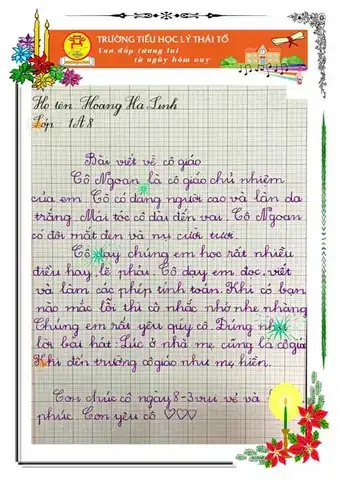 TRƯỜNG TIỂU HỌC LÝ THÁI TỔ
Vun đắp tương lai
từ ngày hôm nay
Họ tên Hoàng Hà Linh
Lớp 1A8
Bài viết về cô giáo
Cô Ngoan là cô giáo chủ nhiệm
của em. Cô có dáng người cao và làn da
trắng. Mái tóc cô dài đến vai. Cô Ngoan
có đôi mắt đen và nụ cười tươi.
Cô dạy chúng em học rất nhiều
điều hay, lẽ phải. Cô dạy em đọc, viết
và làm các phép tính toán. Khi có bạn
nào mắc lỗi thì cô nhắc nhở nhẹ nhàng
Chúng em rất yêu quý cô. Đúng như
lời bài hát: Lúc ở nhà mẹ cũng là cô giáo
Khi đến trường cô giáo như mẹ hiền.
Con chúc cô ngày 8-3 vui vẻ và
phúc. Con yêu cô ♡♡♡